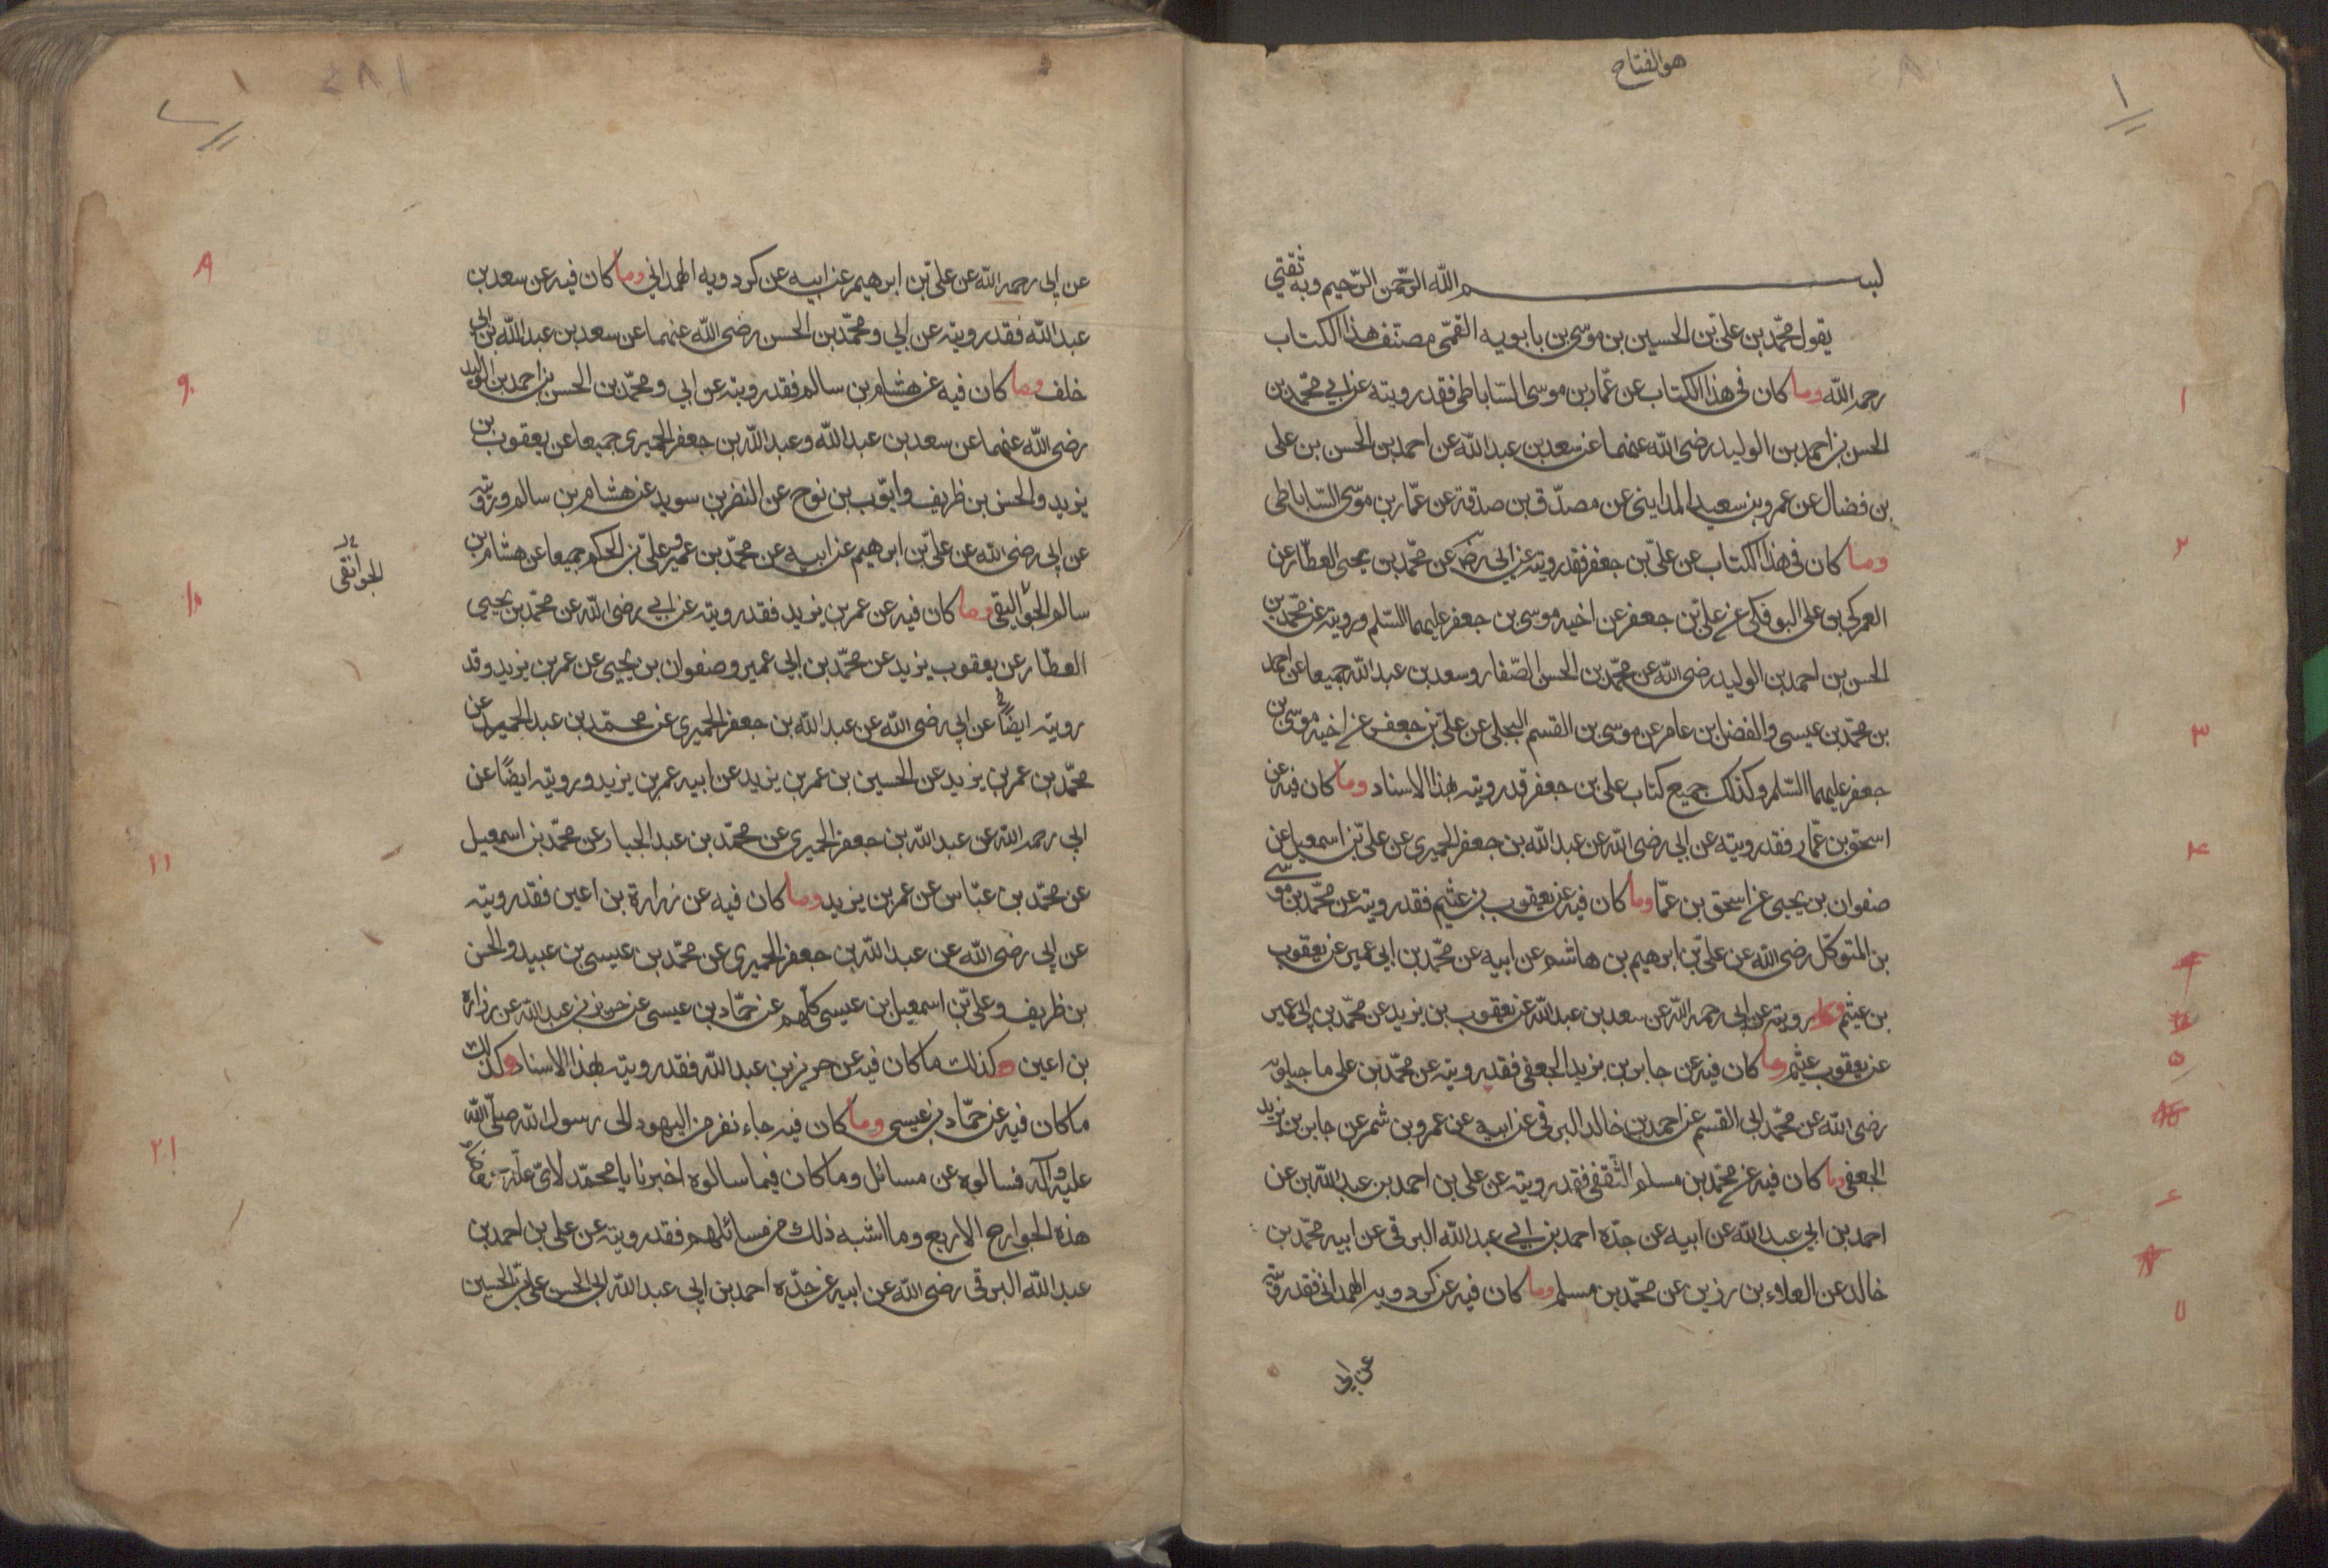 هو الفتاح
١
بسم الله الرحمن الرحيم وبه ثقتي
يقول محمّد بن علىّ بن الحسين بن موسى بن بابويه القمّى مصنّف هذا الكتاب
رحمه الله وما كان فى هذا الكتاب عن عمّار بن موسى السّاباطى فقد رويته عن ابي محمّد بن
الحسن بن احمد بن الوليد رضى الله عنهما عن سعد بن عبد الله عن احمد بن الحسن بن على
بن فضال عن عمرو بن سعيد المدايني عن مصدّق بن صدقة عن عمّار بن موسى السّاباطى
وما كان فى هذا الكتاب عن علىّ بن جعفر فقد رويته عن ابى رض عن محمّد بن يحيى العطّار عن
العمركى بن على البوفكى عن علىّ بن جعفر عن اخيه موسى بن جعفر عليهما السّلم ورويته عن محمّد بن
الحسن بن احمد بن الوليد رضى الله عن محمّد بن الحسن الصّفار وسعد بن عبد الله جميعا عن احمد
بن محمّد بن عيسى والفضل بن عامر عن موسى بن القسم البجلى عن علىّ بن جعفر عن اخيه موسى بن
جعفر عليهما السّلم وكذلك جميع كتاب على بن جعفر قد رويته بهذا الاسناد وما كان فيه عن
اسحق بن عمّار فقد رويته عن ابى رضى الله عن عبد الله بن جعفر الحميرى عن علىّ بن اسمعيل عن
صفوان بن يحيى عن اسحق بن عمّا وما كان فيه عن يعقوب بن عثيم فقد رويته عن محمّد بن موسى
بن المتوكّل رضى الله عن علىّ بن ابرهيم بن هاشم عن ابيه عن محمّد بن ابى عمير عن يعقوب
بن عيثم رويته عن ابى رحمه الله عن سعد بن عبد الله عن يعقوب بن يزيد عن محمّد بن ابى عمير
عن يعقوب عيثم وما كان فيه عن جابر بن يزيد الجعفى فقد رويته عن محمّد بن على ماجيلويه
رضى الله عن محمّد ابى القسم عن احمد بن خالد البرقى عن ابيه عن عمرو بن شمر عن جابر بن يزيد
الجعفى وما كان فيه عن محمّد بن مسلم الثّقفى فقد رويته عن على بن احمد بن عبد الله بن عن
احمد بن ابي عبد الله عن ابيه عن جدّه احمد بن ابي عبد الله البرقى عن ابيه محمّد بن
خالد عن العلاء بن رزين عن محمّد بن مسلم وما كان فيه عن كردويه الهمدانى فقد رويته
عن ابى
١
٢
٣
٤
٥
٦
٧
٢
عن ابى رحمه الله عن علىّ بن ابرهيم عن ابيه عن كردويه الهمداني وما كان فيه عن سعد بن
عبد الله فقد رويته عن ابي ومحمّد بن الحسن رضى الله عنهما عن سعد بن عبد الله بن ابى
خلف وما كان فيه عن هشام بن سالم فقد رويته عن ابي ومحمّد بن الحسن بن احمد بن الوليد
رضى الله عنهما عن سعد بن عبد الله وعبد الله بن جعفر الحميرى جميعا عن يعقوب بن
يزيد والحسن بن ظريف وايّوب بن نوح عن النضر بن سويد عن هشام بن سالم ورويته
عن ابى رضى الله عن علىّ بن ابرهيم عن ابيه عن محمّد بن عمير وعلىّ بن الحكم جميعا عن هشام بن
سالم الجواليقى وما كان فيه عن عمر بن يزيد فقد رويته عن ابي رضى الله عن محمّد بن يحيى
العطّار عن يعقوب يزيد عن محمّد بن ابي عمير وصفوان بن يحيى عن عمر بن يزيد وقد
رويته ايضاً عن ابى رضى الله عن عبد الله بن جعفر الحميرى عن محمّد بن عبد الحميد عن
محمّد بن عمر بن يزيد عن الحسين بن عمر بن يزيد عن ابيه عمر بن يزيد ورويته ايضًا عن
ابى رحمه الله عن عبد الله بن جعفر الحميرى عن محمّد بن عبد الجبار عن محمّد بن اسمعيل
عن محمّد بن عبّاس عن عمر بن يزيد وما كان فيه عن زرارة بن اعين فقد رويته
عن ابى رضى الله عن عبد الله بن جعفر الحميرى عن محمّد بن عيسى بن عبيد والحسن
بن ظريف وعلىّ بن اسمعيل بن عيسى كلّهم عن حمّاد بن عيسى عن حريز بن عبد الله عن زرارة
بن اعين وكذلك ما كان فيه عن حريز بن عبد الله فقد رويته بهذا الاسناد وكذلك
ما كان فيه عن حمّاد بن عيسى وما كان فيه جاء نفر من اليهود الى رسول الله صلّى الله
عليه وآله فسالوه عن مسائل وما كان فيما سالوه اخبرنا يا محمّد لاىّ علّة
هذه الجوارح الاربع وما اشبه ذلك من مسائلهم فقد رويته عن على بن احمد بن
عبد الله البرقى رضى الله عن ابيه عن جدّه احمد بن ابي عبد الله ابى الحسن علىّ بن الحسين
٨
٩
١٠
١١
٢١